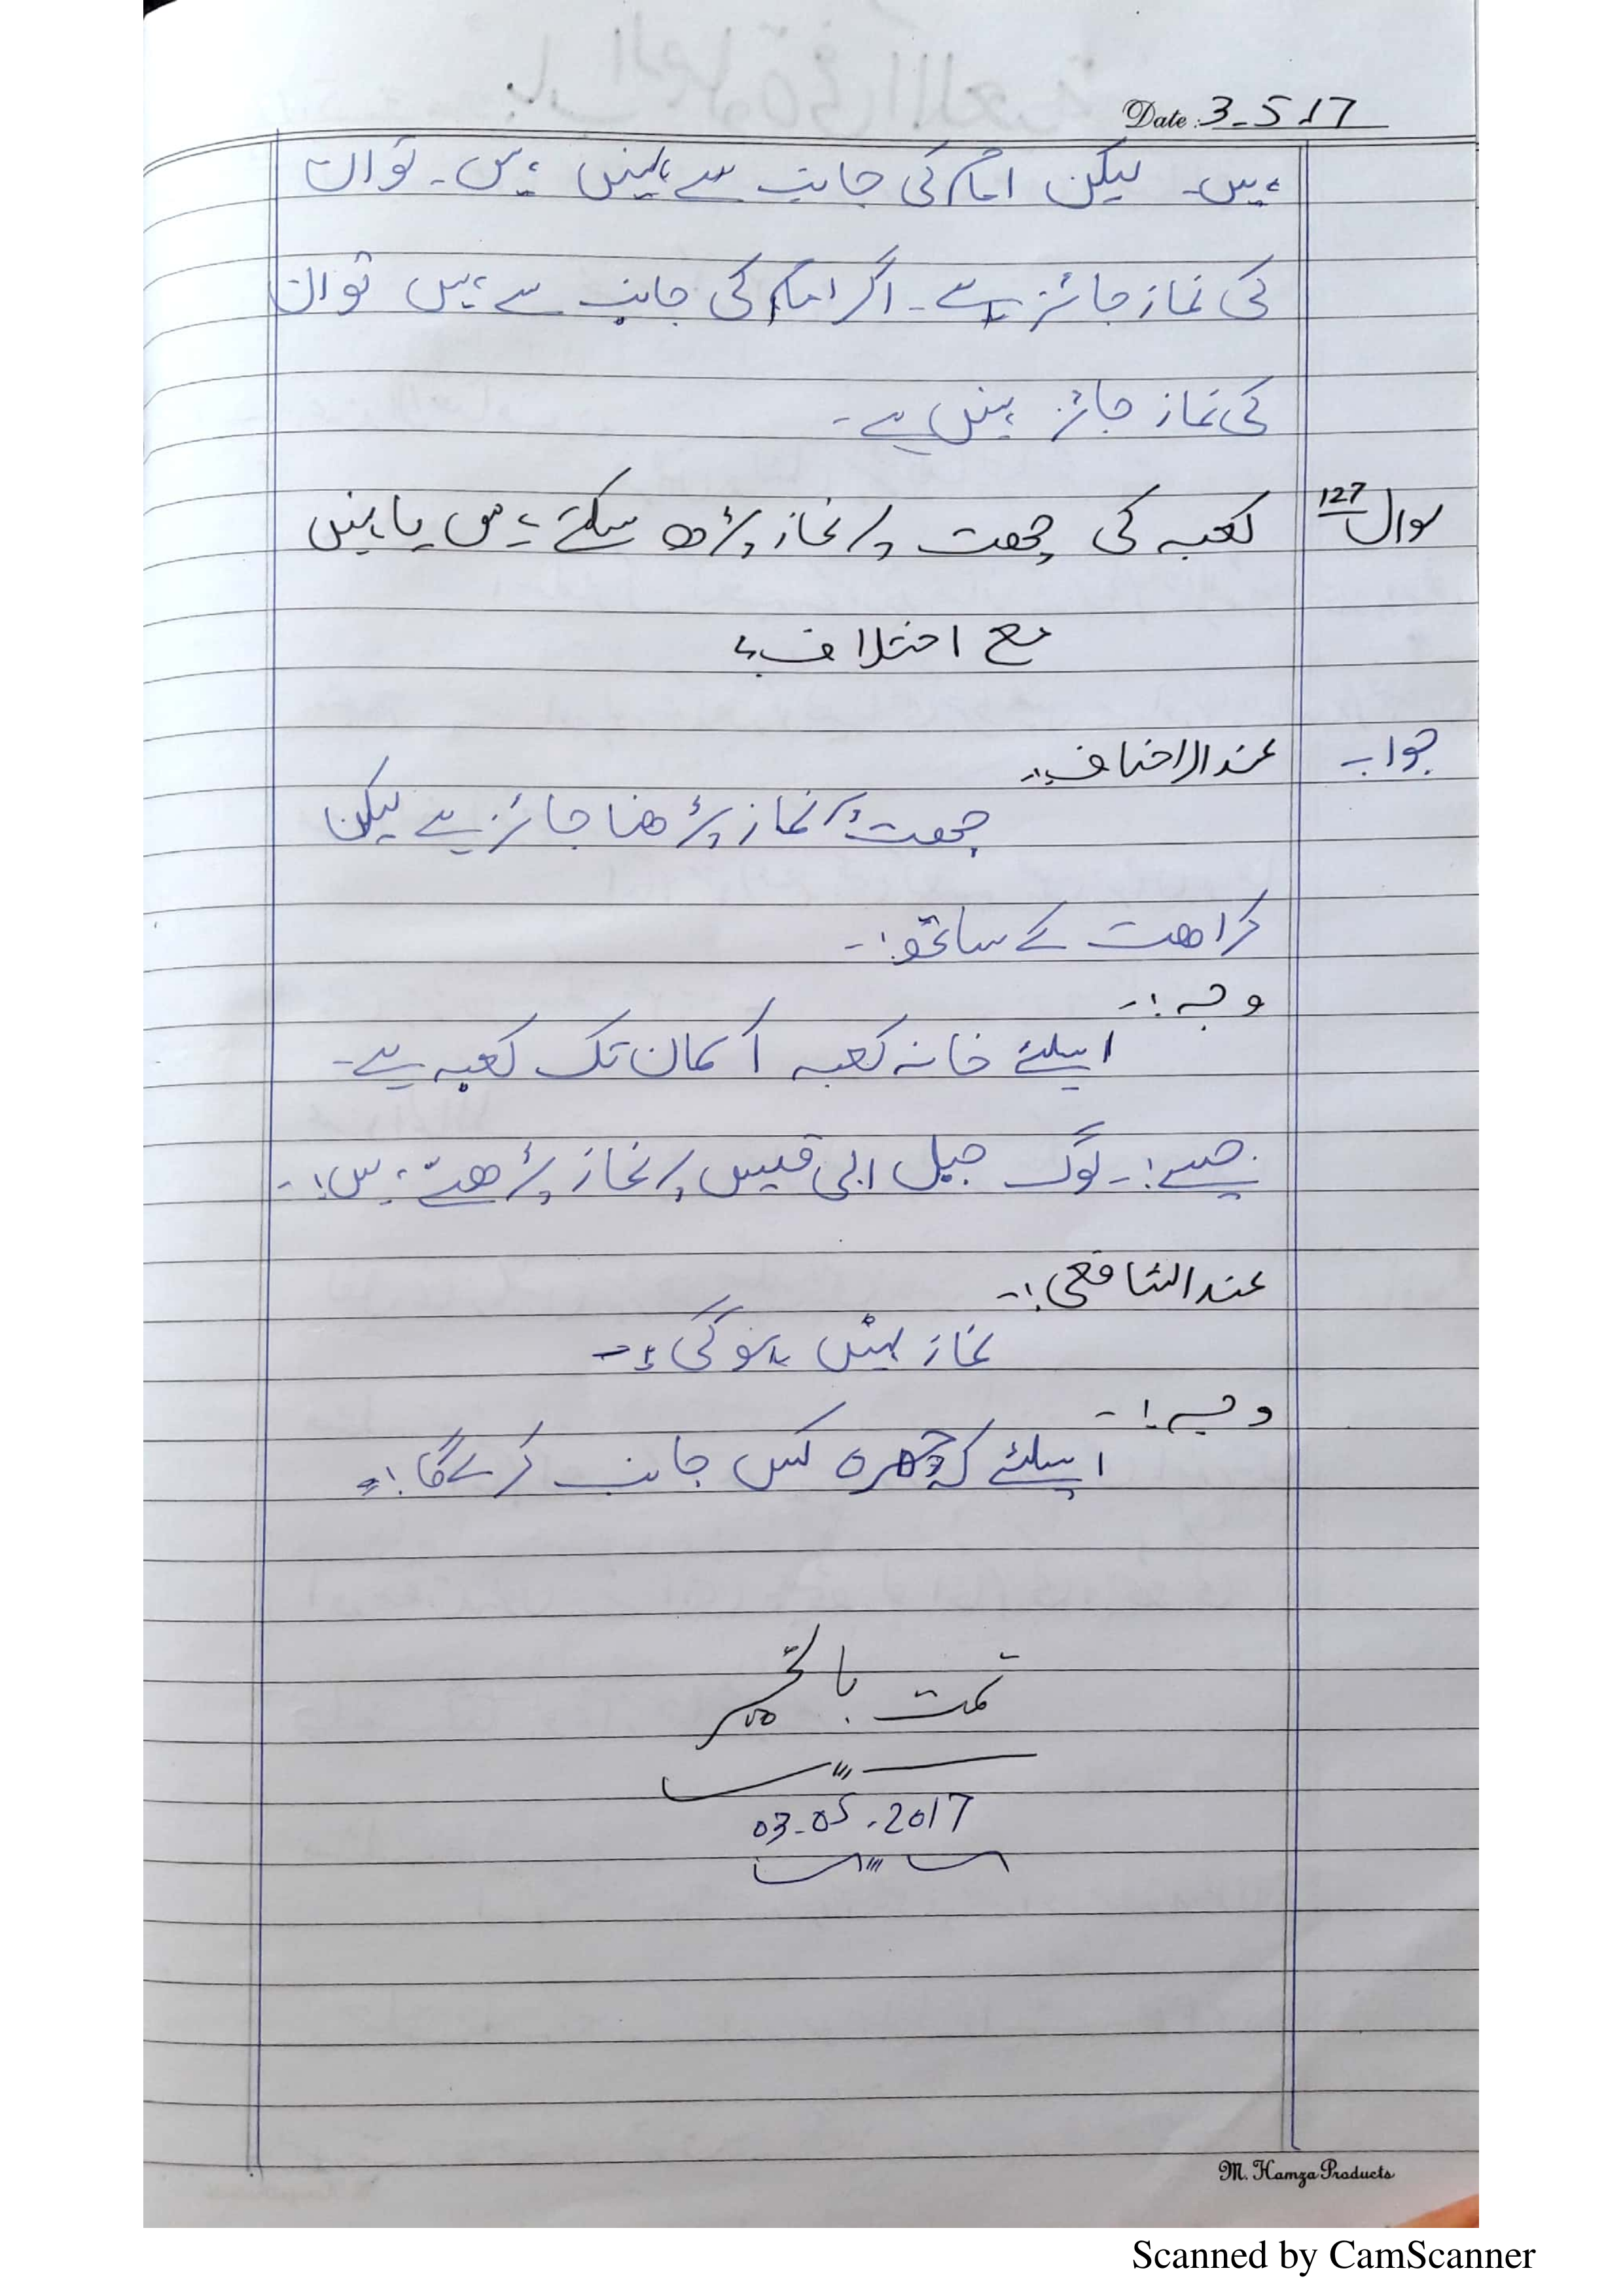 Date: 3-5-17
ہیں۔ لیکن امام کی جانب سے نہیں ہیں۔ تو ان
کی نماز جائز ہے۔ اگر امام کی جانب سے ہیں تو ان
کی نماز جائز نہیں ہے۔
سوال 127 کعبہ کی چھت پر نماز پڑھ سکتے ہیں یا نہیں
مع اختلاف؟
جواب عند الاحناف:۔
چھت پر نماز پڑھنا جائز ہے لیکن
کراھت کے ساتھ:۔
وجہ:۔
اسلئے خانہ کعبہ آسمان تک کعبہ ہے۔
جیسے:۔ لوگ جبل ابی قیس پر نماز پڑھتے ہیں:۔
عند الشافعی:۔
نماز نہیں ہوگی:۔
وجہ:۔
اسلئے کہ چھرہ کس جانب کرے گا:۔
تمت بالخیر
03-05-2017
M. Hamza Products
Scanned by CamScanner